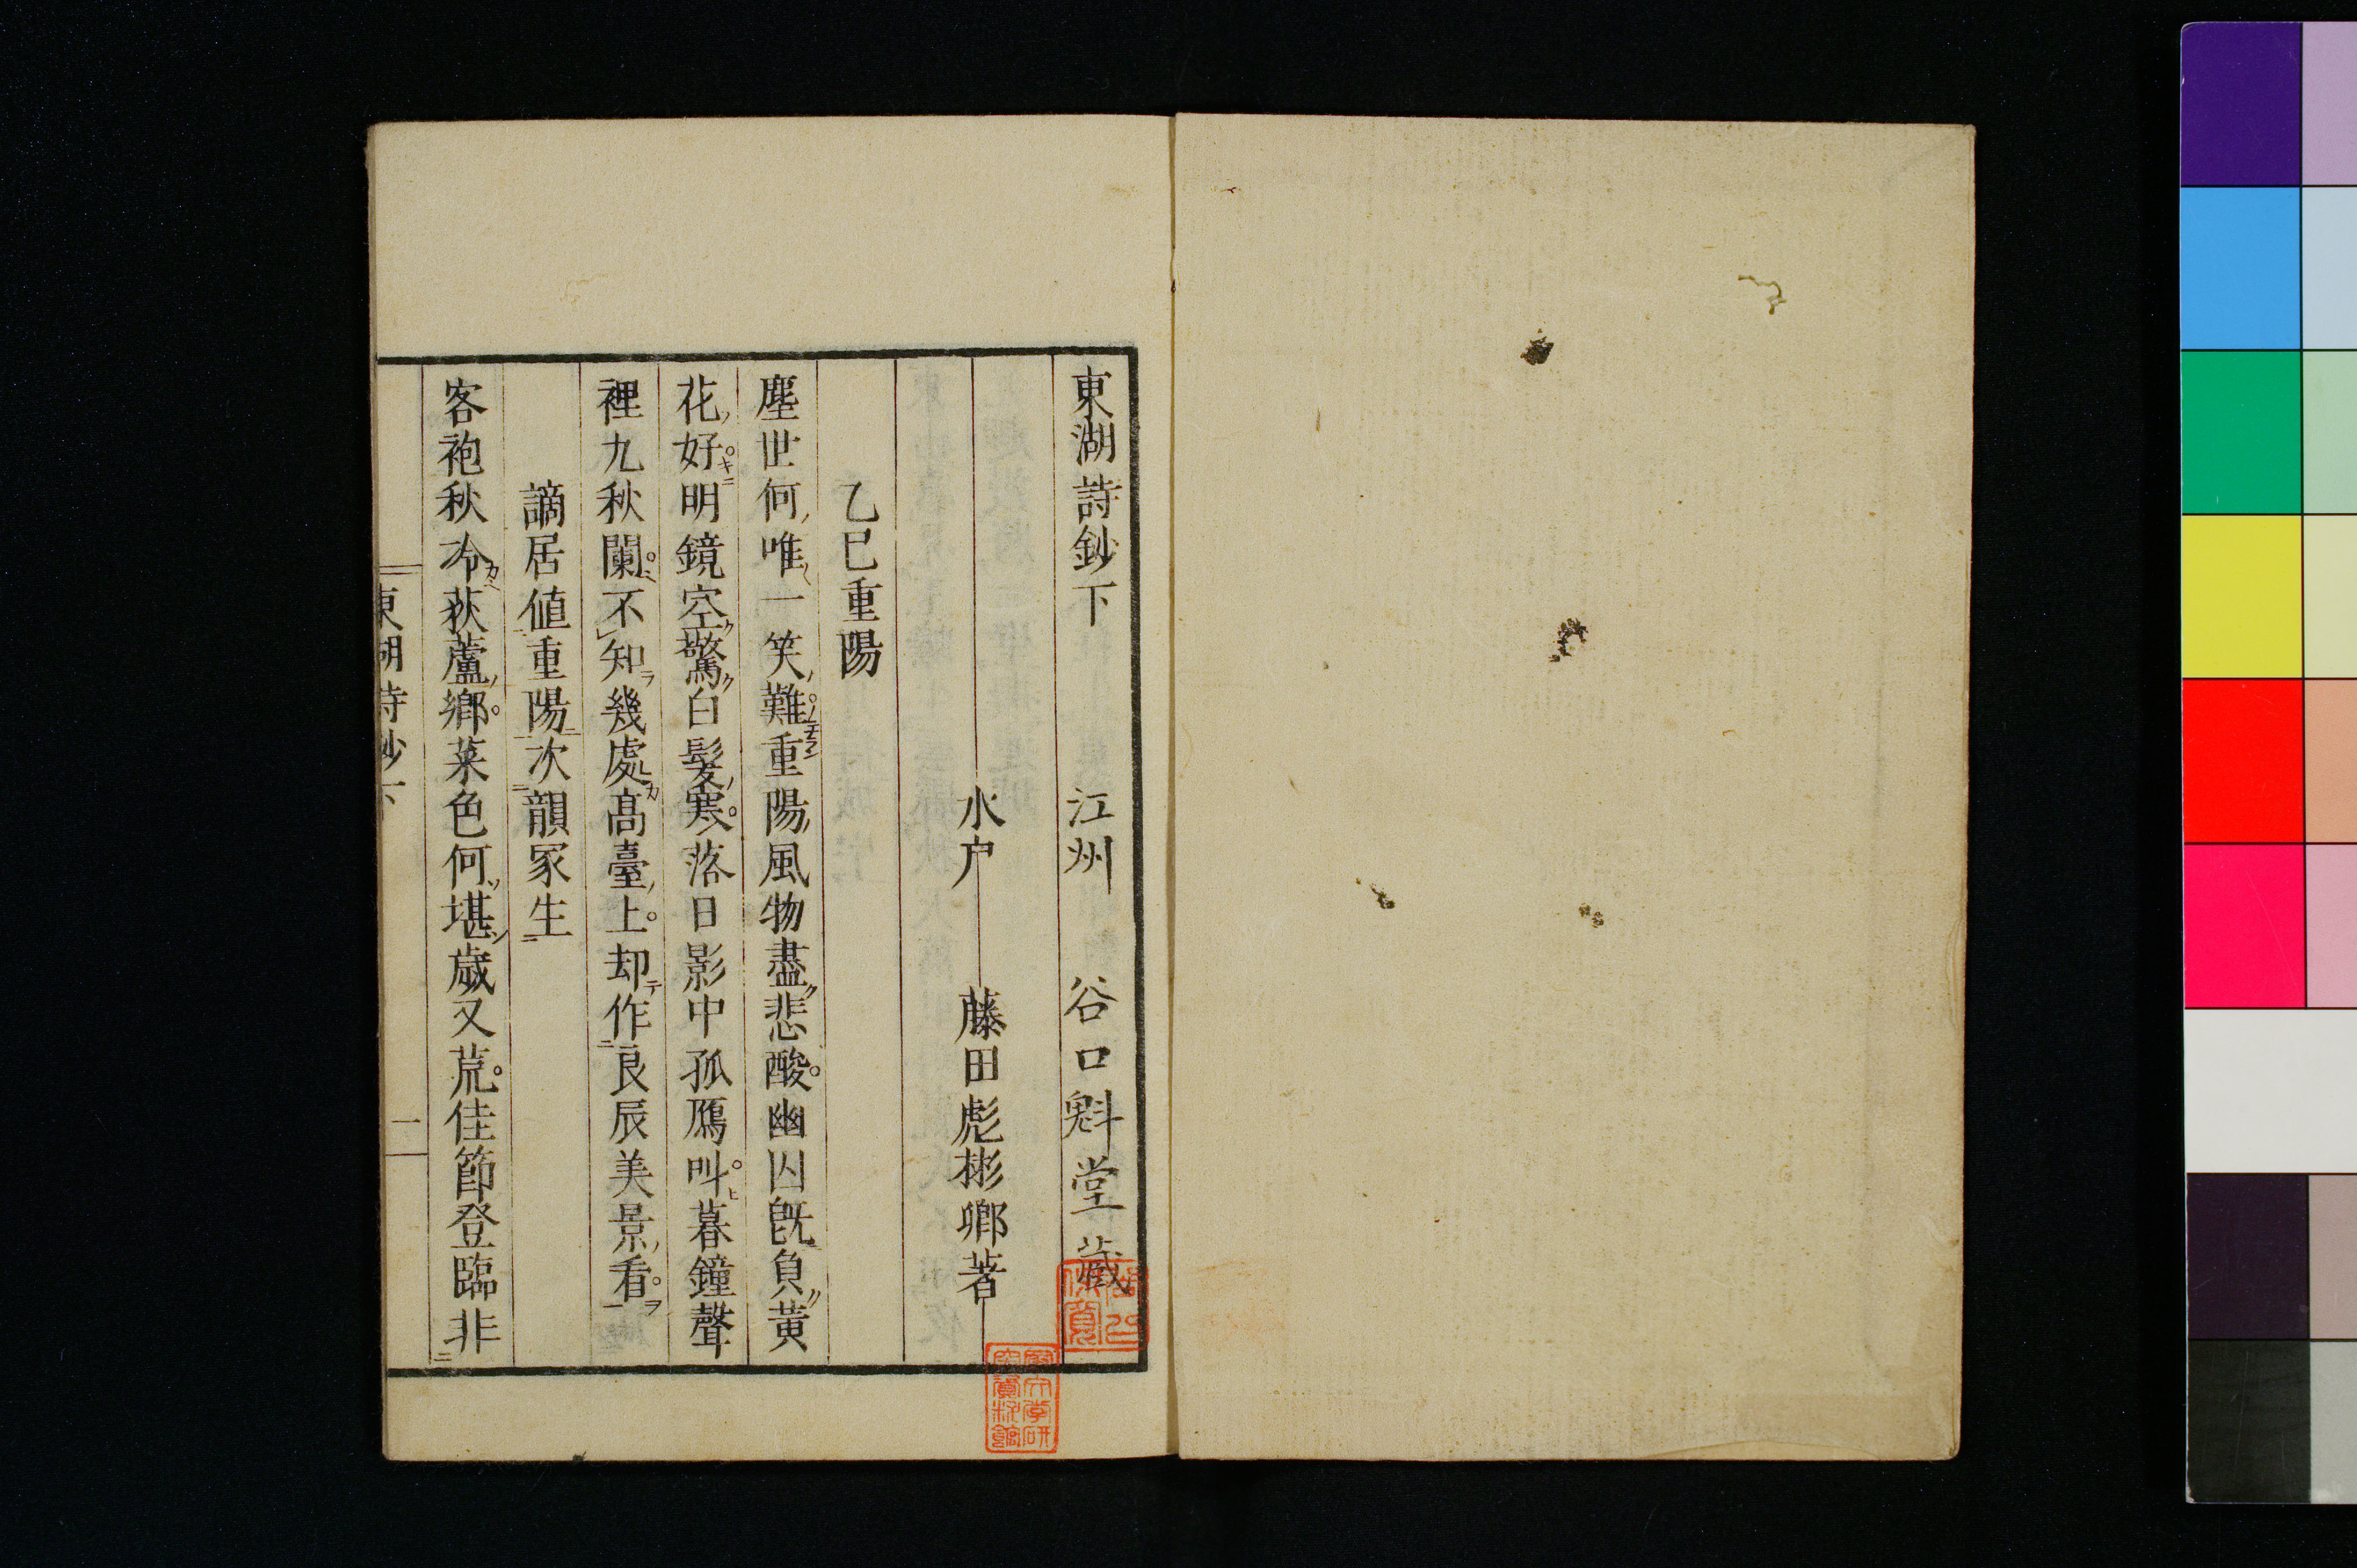 東湖詩鈔下　江州　谷口魁堂藏
水戸　藤田彪彬卿著
乙巳重陽
塵世何唯一笑難重陽風物盡悲酸幽囚旣負黃
花好明鏡空驚白髮寒落日影中孤鴈叫暮鐘聲
裡九秋闌不知幾處髙臺上却作良辰美景看
謫居値重陽次韻冢生
客袍秋冷荻蘆鄉菜色何堪歲又荒佳節登臨非
東湖詩鈔下
一